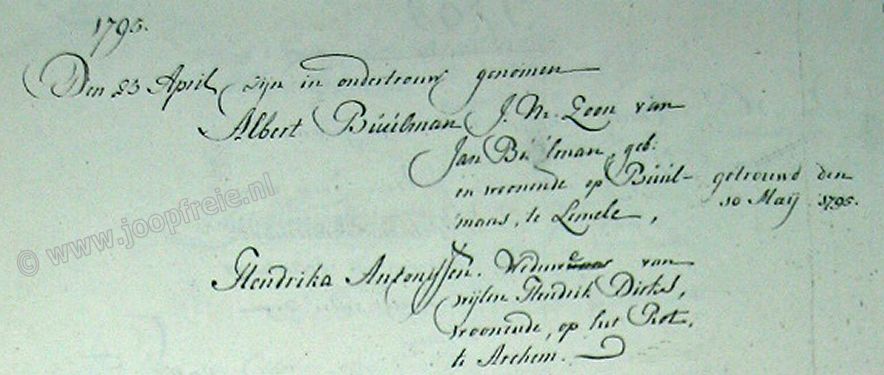 1795.
Den 23 April zijn in ondertrouw genomen
Albert Büülman J. M. Zoon van
Jan Büülman, geb:
en woonende op Büül- getrouwd den
maas, te Lemele, 10 Maij 1795.
Hendrika Antonissen. Weduwe van
wijlen Hendrik Dirks,
woonende, op het Rot,
te Archem.
© www.joopfreie.nl